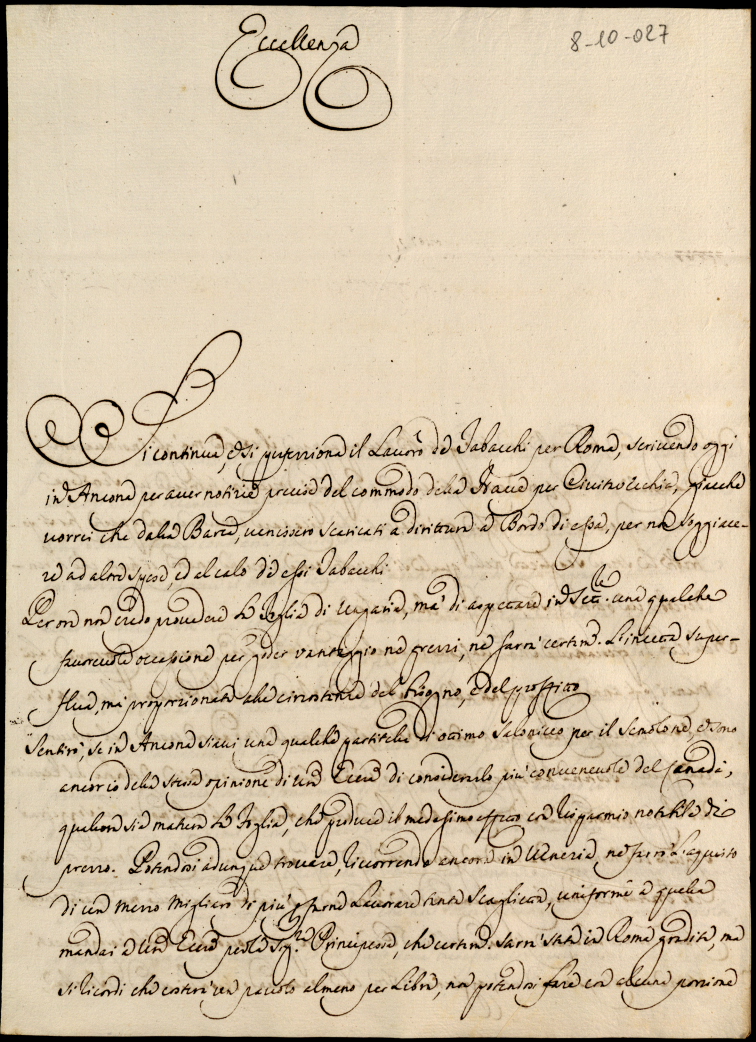 Eccellenza
8-10-027
Si continua, e si perfeziona il Lavoro de Tabacchi per Roma, scrivendo oggi
in Ancona per aver notizia precisa del commodo della per Civitavecchia, giacche
vorrei che dalla Barca, venissero scaricati a dirittura a Bordo di essa, per non soggiace-
re ad altre spese, ed al calo de essi Tabacchi
Per ora non credo provedere la foglia di Ungaria, ma' di aspettare in una qualche
favorevole occasione per goder vantaggio ne prezzi, ne farrò certam. L'incetta super-
flua, ma' proporzionata alle circostanze del bisogno, e del profitto
Sentirò, se in Ancona siavi una qualche partitella di ottimo Salonicco per il Semolone, e sono
ancor io della stessa opinione di Ecca di considerarlo più convenevole del Canada,
qualora sia matura la foglia, che produce il medesimo effetto con risparmio notabile di
prezzo. Potendosi adunque trovare, ricorrendo ancora in Venezia, ne farrò l'aquisto
di un mezzo Migliaro di più, per farne Lavorare tanta Scaglietta, uniforme a quella
mandai a Ecca per la Sig.ra Principessa, che certam. sarrà stata in Roma gradita, ma
si ricordi che costerà un paulo almeno per Libra, non potendosi fare con alcuna porzione